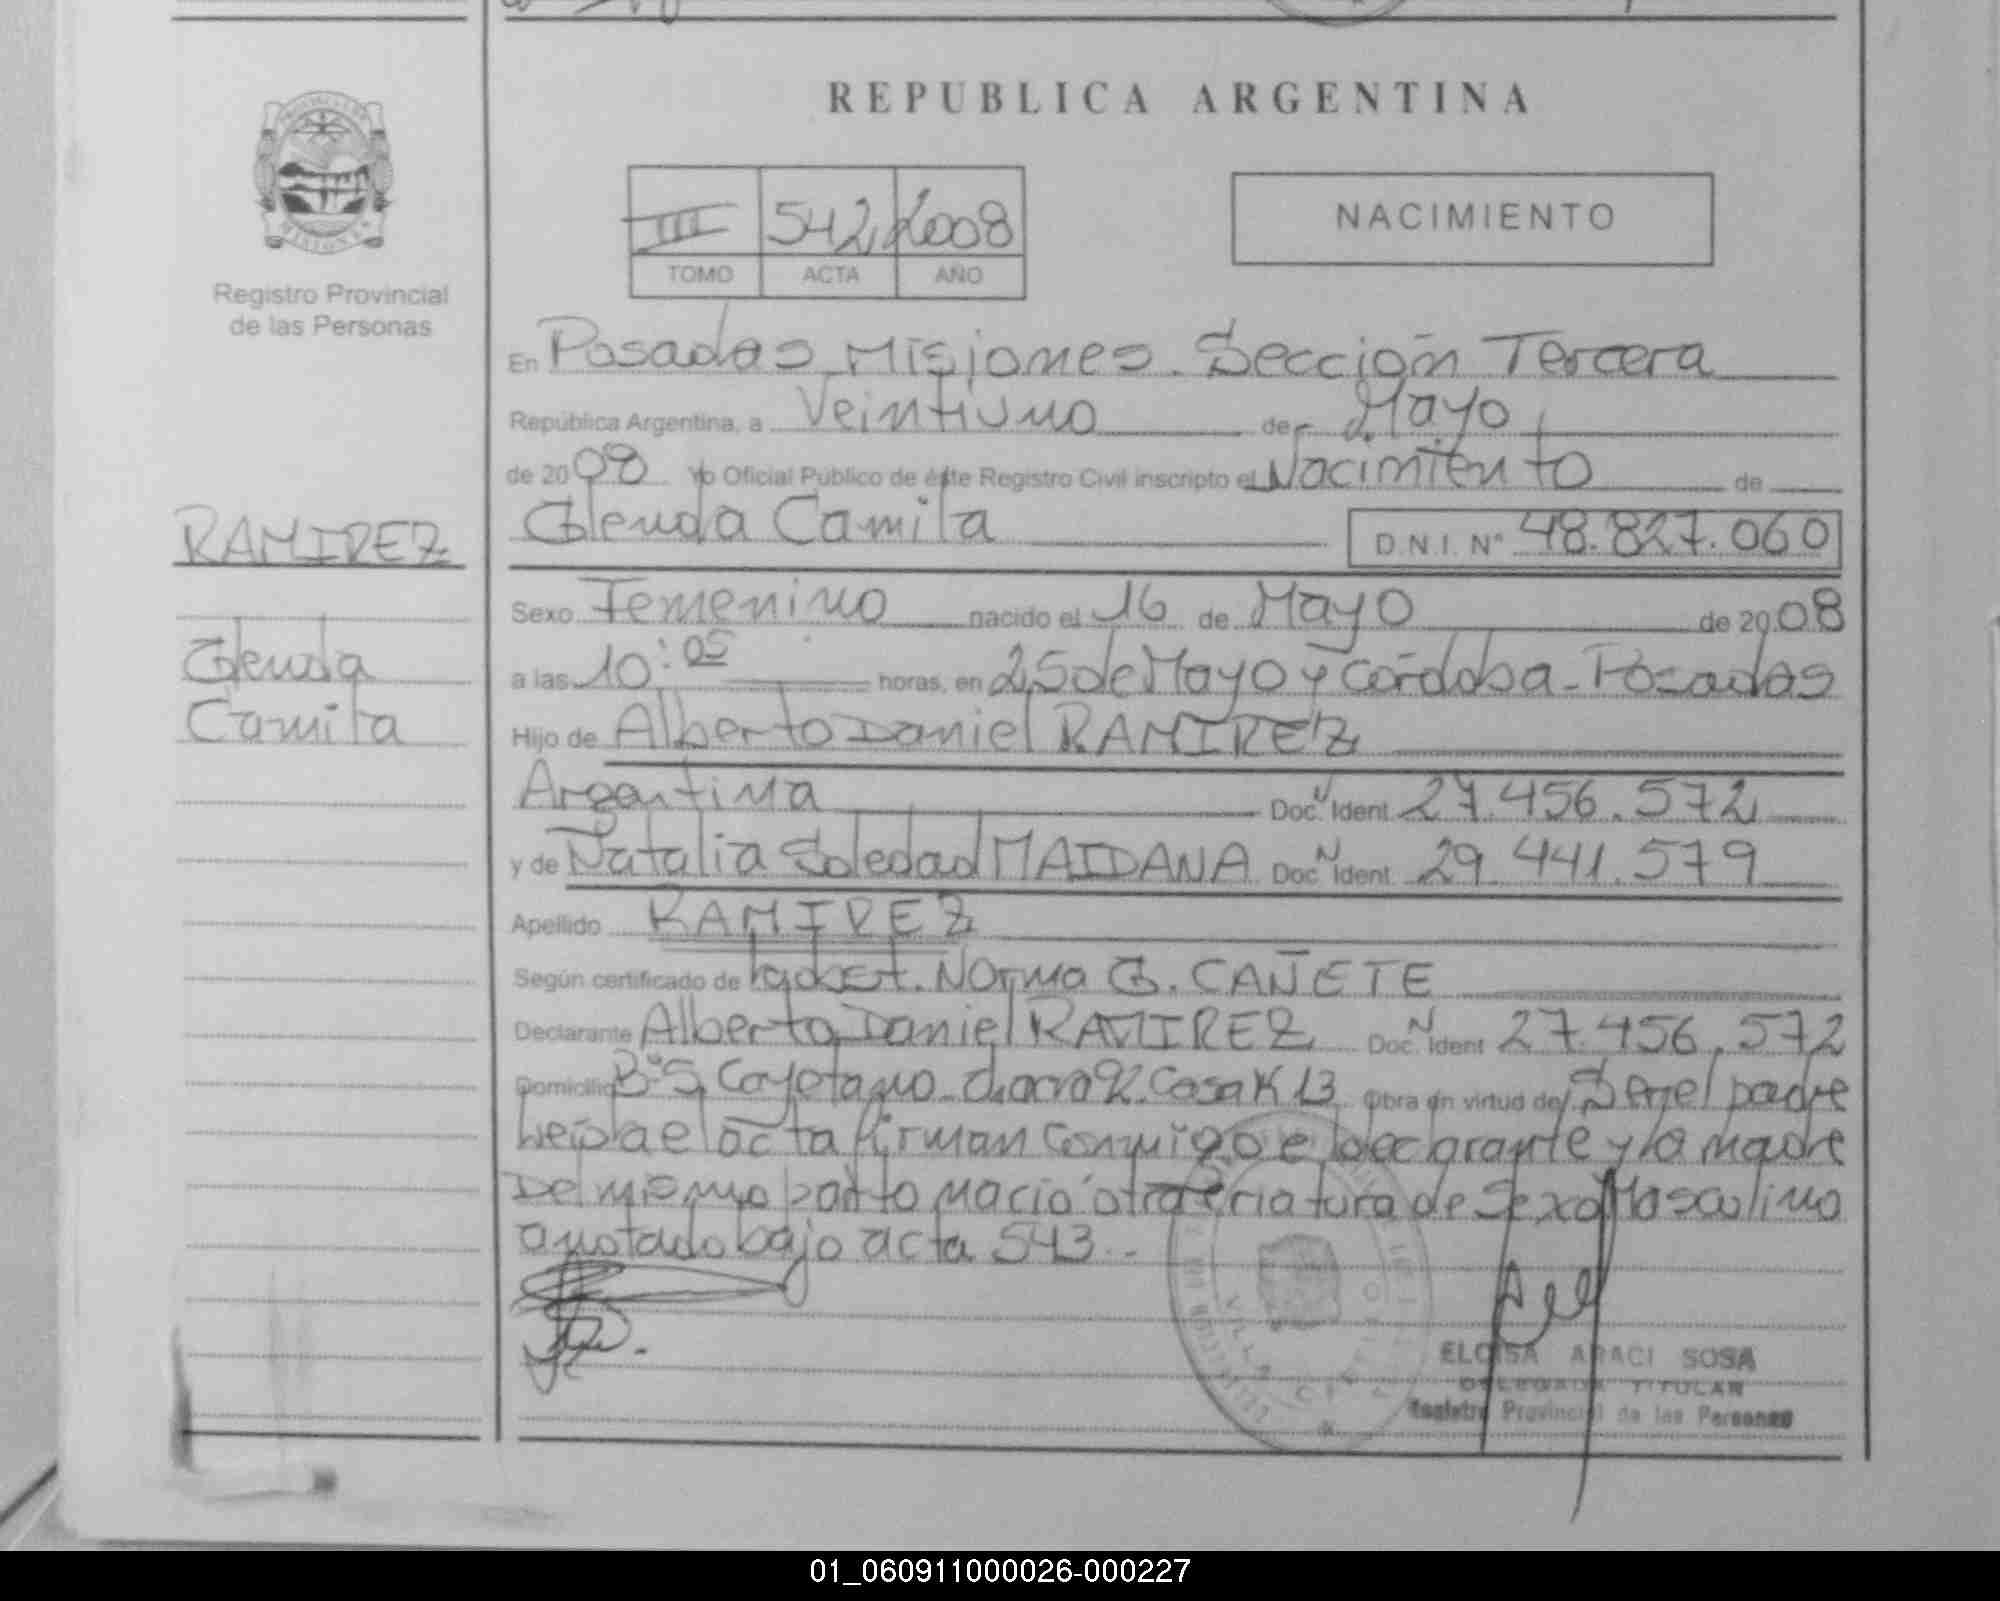 REPUBLICA ARGENTINA
III 542 2008
TOMO ACTA AÑO
NACIMIENTO
Registro Provincial
de las Personas
En Posadas Misiones. Sección Tercera
República Argentina, a Veintiuno de Mayo
de 2008 Yo Oficial Público de éste Registro Civil inscripto el Nacimiento de
RAMIREZ
Glenda Camila D.N.I. Nº 48.827.060
Sexo Femenino nacido el 16 de Mayo de 2008
Glenda
a las 10:05 horas, en 25 de Mayo y Córdoba - Posadas
Camila
Hijo de Alberto Daniel RAMIREZ
Argentina Doc. N Ident. 27.456.572
y de Natalia Soledad MAIDANA Doc. N Ident. 29.441.579
Apellido RAMIREZ
Según certificado de Norma G. CAÑETE
Declarante Alberto Daniel RAMIREZ Doc. N Ident 27.456.572
Domicilio Bº S. Cayetano Casa K 13 Obra en virtud de Ser el padre
Leída el acta firman conmigo el declarante y la madre
Del mismo parto nació otra criatura de Sexo Masculino
anotado bajo acta 543.-
ELOISA ARACI SOSA
DELEGADA TITULAR
Registro Provincial de las Personas
01_060911000026-000227